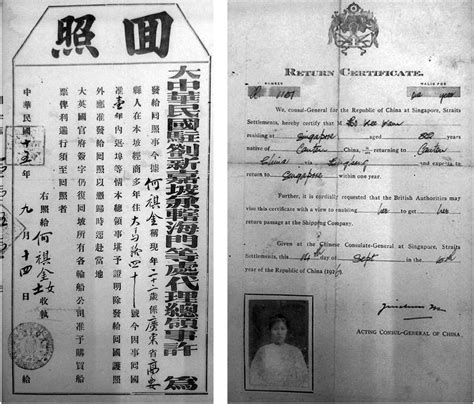 回照
大中華民國駐劄新嘉坡兼轄海門等處代理總領事許 為
發給回照事今據何祺金稱現年二十二歲係廣東省高要
縣人在本埠經商多年住
號今因事回國
准壹年內返埠等情本總領事堪予證明除發給回國護照
外應准發給回照以憑歸時逕赴當地
大英國官府簽字仍復回坡所有各輪船公司准予購買船
票俾利遄行須至回照者
右照給何祺金女士收執
中華民國十五年九月十四日給
RETURN CERTIFICATE.
NUMBER VALID FOR
1107 one year
We, consul-General for the Republic of China at Singapore, Straits
Settlements, hereby certify that Ho Kee Kam
residing at Singapore aged years
native of Canton China is returning to Canton
China via Hongkong and expects to
return to Singapore within one year.
Further, it is cordially requested that the British Authorities may
visa this certificate with a view to enabling her to get her
return passage at the Shipping Company.
Given at the Chinese Consulate-General at Singapore, Straits
Settlements, this 14th day of Sept in the 15th
year of the Republic of China (192
ACTING CONSUL-GENERAL OF CHINA